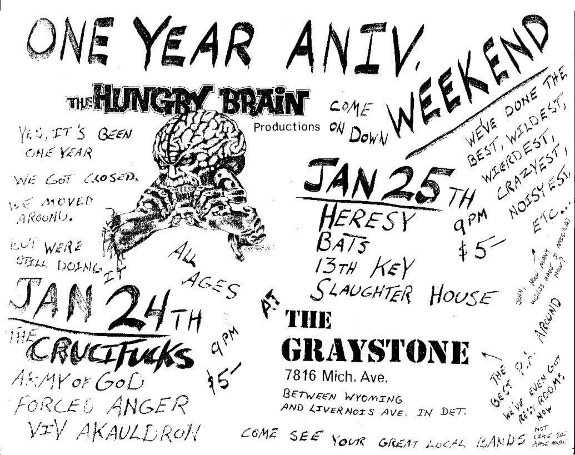 ONE YEAR ANIV.
WEEKEND
THE HUNGRY BRAIN
Productions
COME
ON DOWN
YES, IT'S BEEN
ONE YEAR
WE GOT CLOSED.
WE MOVED
AROUND.
BUT WERE
STILL DOING IT
ALL
AGES
WE'VE DONE THE
BEST, WILDEST,
WIERDEST,
CRAZYEST,
NOISYEST,
ETC...
JAN 25TH
HERESY
BATS
13TH KEY
SLAUGHTER HOUSE
9PM
$5-
JAN 24TH
THE
CRUCIFUCKS
ARMY OF GOD
FORCED ANGER
VIV AKAULDRON
9PM
$5-
AT
THE
GRAYSTONE
7816 Mich. Ave.
BETWEEN WYOMING
AND LIVERNOIS AVE. IN DET.
THE
BEST P.A. AROUND
WE'VE EVEN GOT
RESTROOMS
NOW
NOT
LIKE THE
COME SEE YOUR GREAT LOCAL BANDS